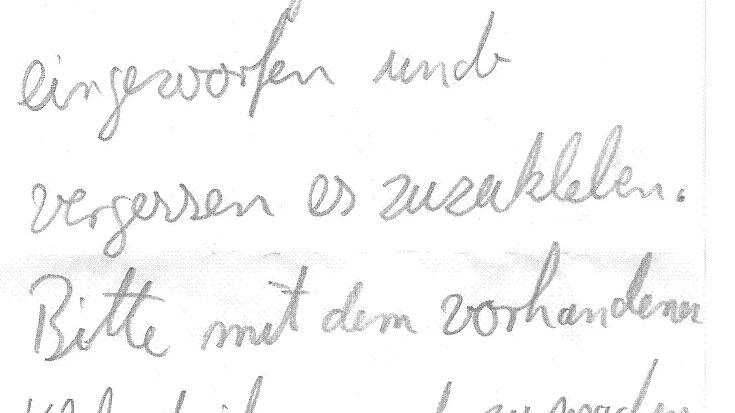 eingeworfen und
vergessen es zuzukleben.
Bitte mit dem vorhandenen